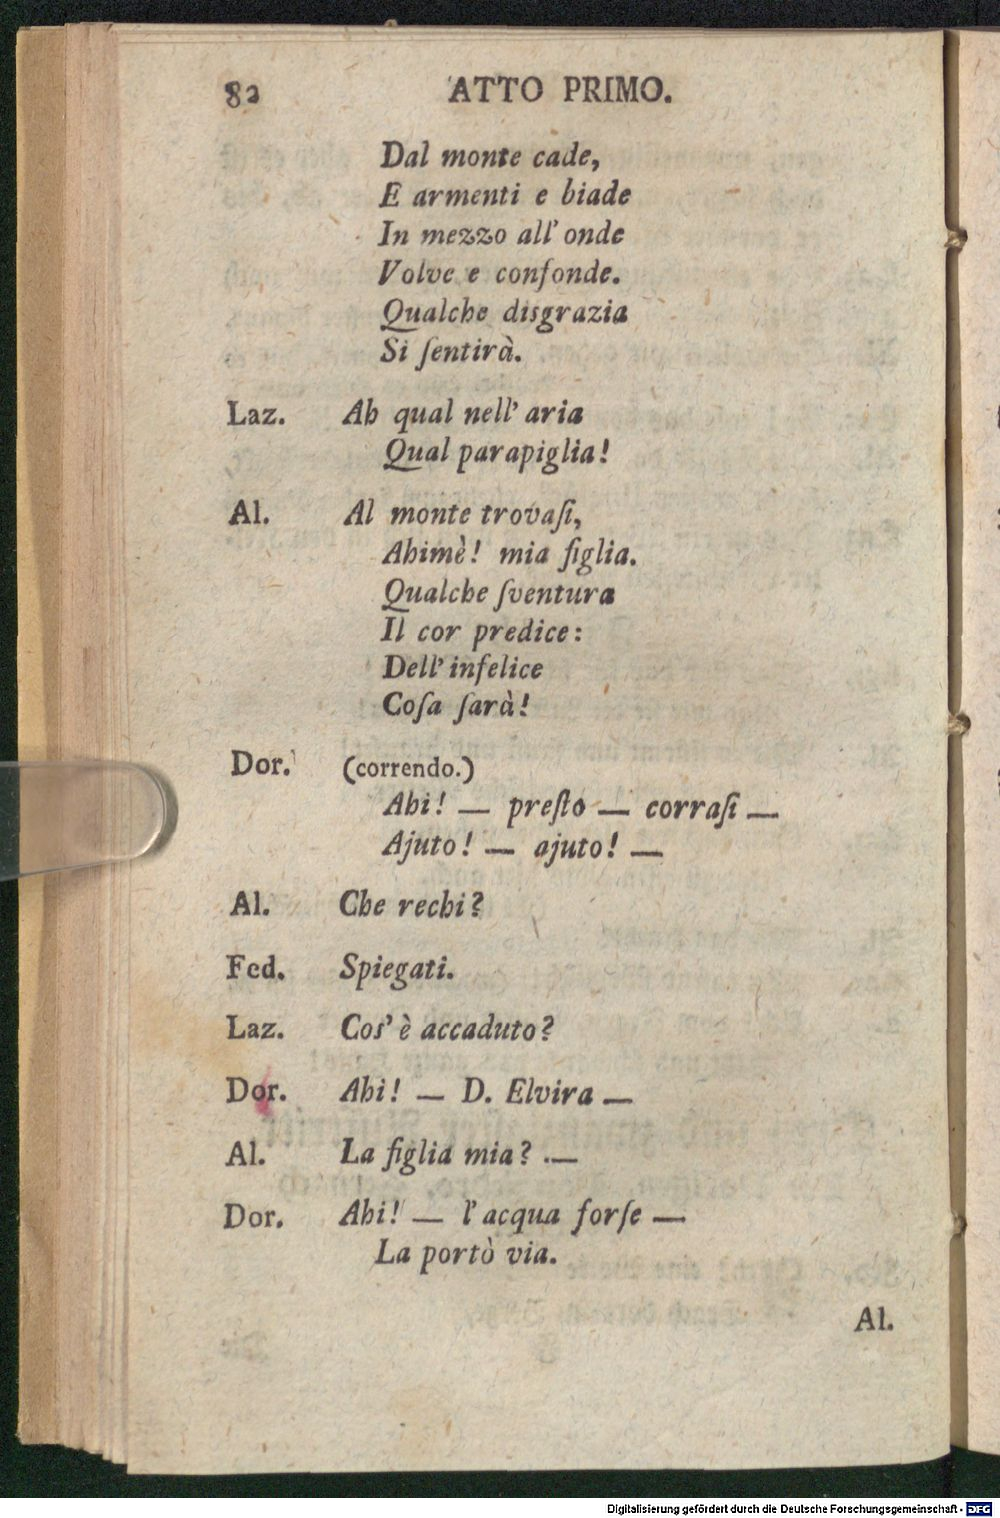 82 ATTO PRIMO.
Dal monte cade,
E armenti e biade
In mezzo all' onde
Volve e confonde.
Qualche disgrazia
Si ſentirà.
Laz. Ah qual nell' aria
Qual parapiglia!
Al. Al monte trovaſi,
Ahimè! mia figlia.
Qualche ſventura
Il cor predice:
Dell' infelice
Coſa ſarà!
Dor. (correndo.)
Ahi! — preſto — corraſi —
Ajuto! — ajuto! —
Al. Che rechi?
Fed. Spiegati.
Laz. Cos' è accaduto?
Dor. Ahi! — D. Elvira —
Al. La figlia mia? —
Dor. Ahi! — l' acqua forſe —
La portò via.
Al.
Digitalisierung gefördert durch die Deutsche Forschungsgemeinschaft - DFG